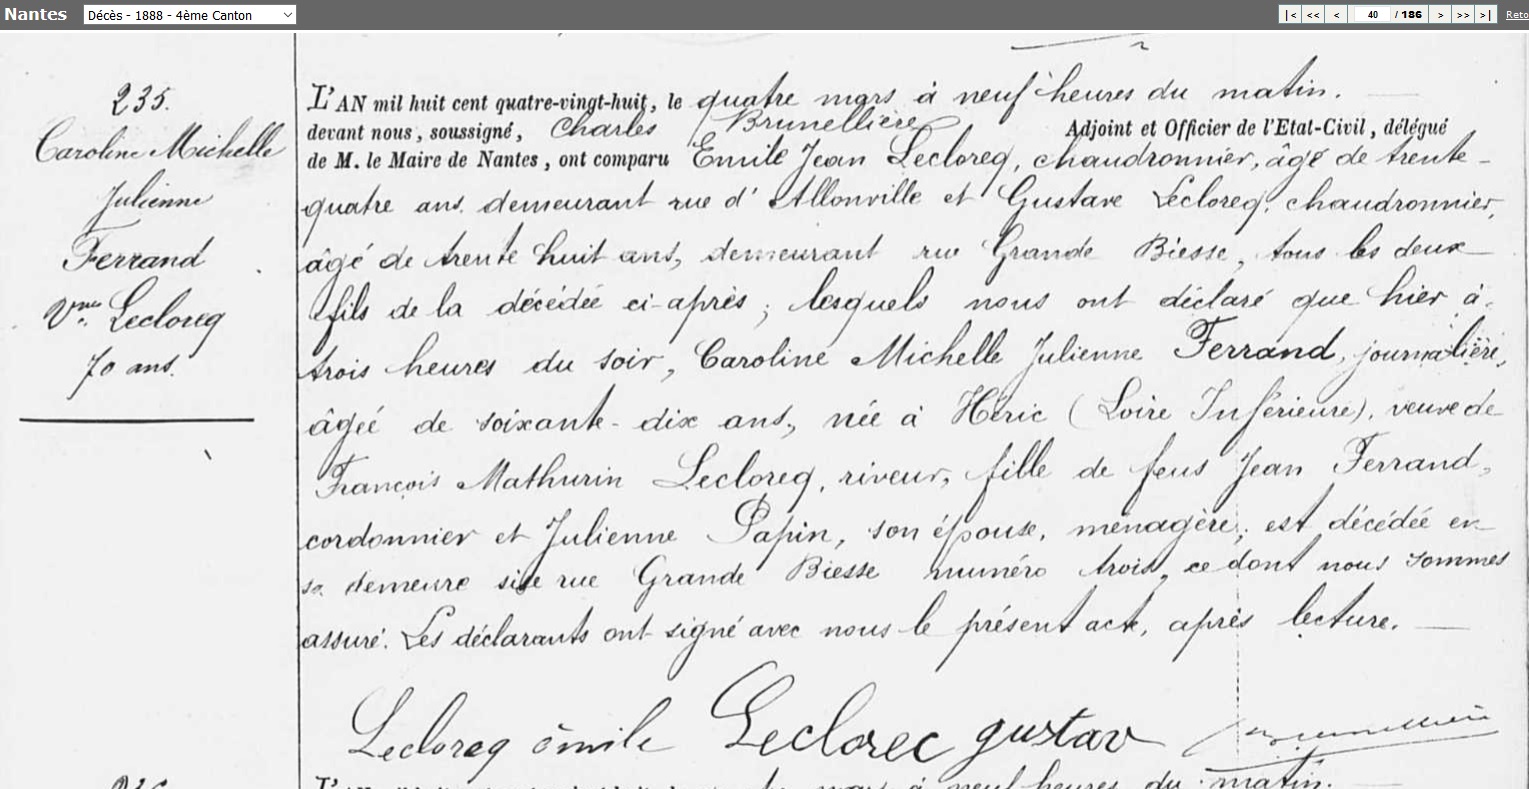 Nantes Décès - 1888 - 4ème Canton |< << < 40 / 186 > >> >| Reto
235.
Caroline Michelle
Julienne
Ferrand
Vve Lecloreq
70 ans.
L'AN mil huit cent quatre-vingt-huit, le quatre mars à neuf heures du matin.
devant nous, soussigné, Charles Brunellière Adjoint et Officier de l'Etat-Civil, délégué
de M. le Maire de Nantes, ont comparu Emile Jean Lecloreq, chaudronnier, âgé de trente-
quatre ans demeurant rue d'Allonville et Gustave Lecloreq, chaudronnier,
âgé de trente huit ans, demeurant rue Grande Biesse, tous les deux
fils de la décédée ci-après; lesquels nous ont déclaré que hier à
trois heures du soir, Caroline Michelle Julienne Ferrand, journalière,
âgée de soixante-dix ans, née à Héric (Loire Inférieure), veuve de
François Mathurin Lecloreq, riveur, fille de feus Jean Ferrand,
cordonnier et Julienne Papin, son épouse, ménagère; est décédée en
sa demeure sise rue Grande Biesse numéro trois, ce dont nous sommes
assuré. Les déclarants ont signé avec nous le présent acte, après lecture.
Lecloreq émile Leclorec gustav
L'AN mars à neuf heures du matin.